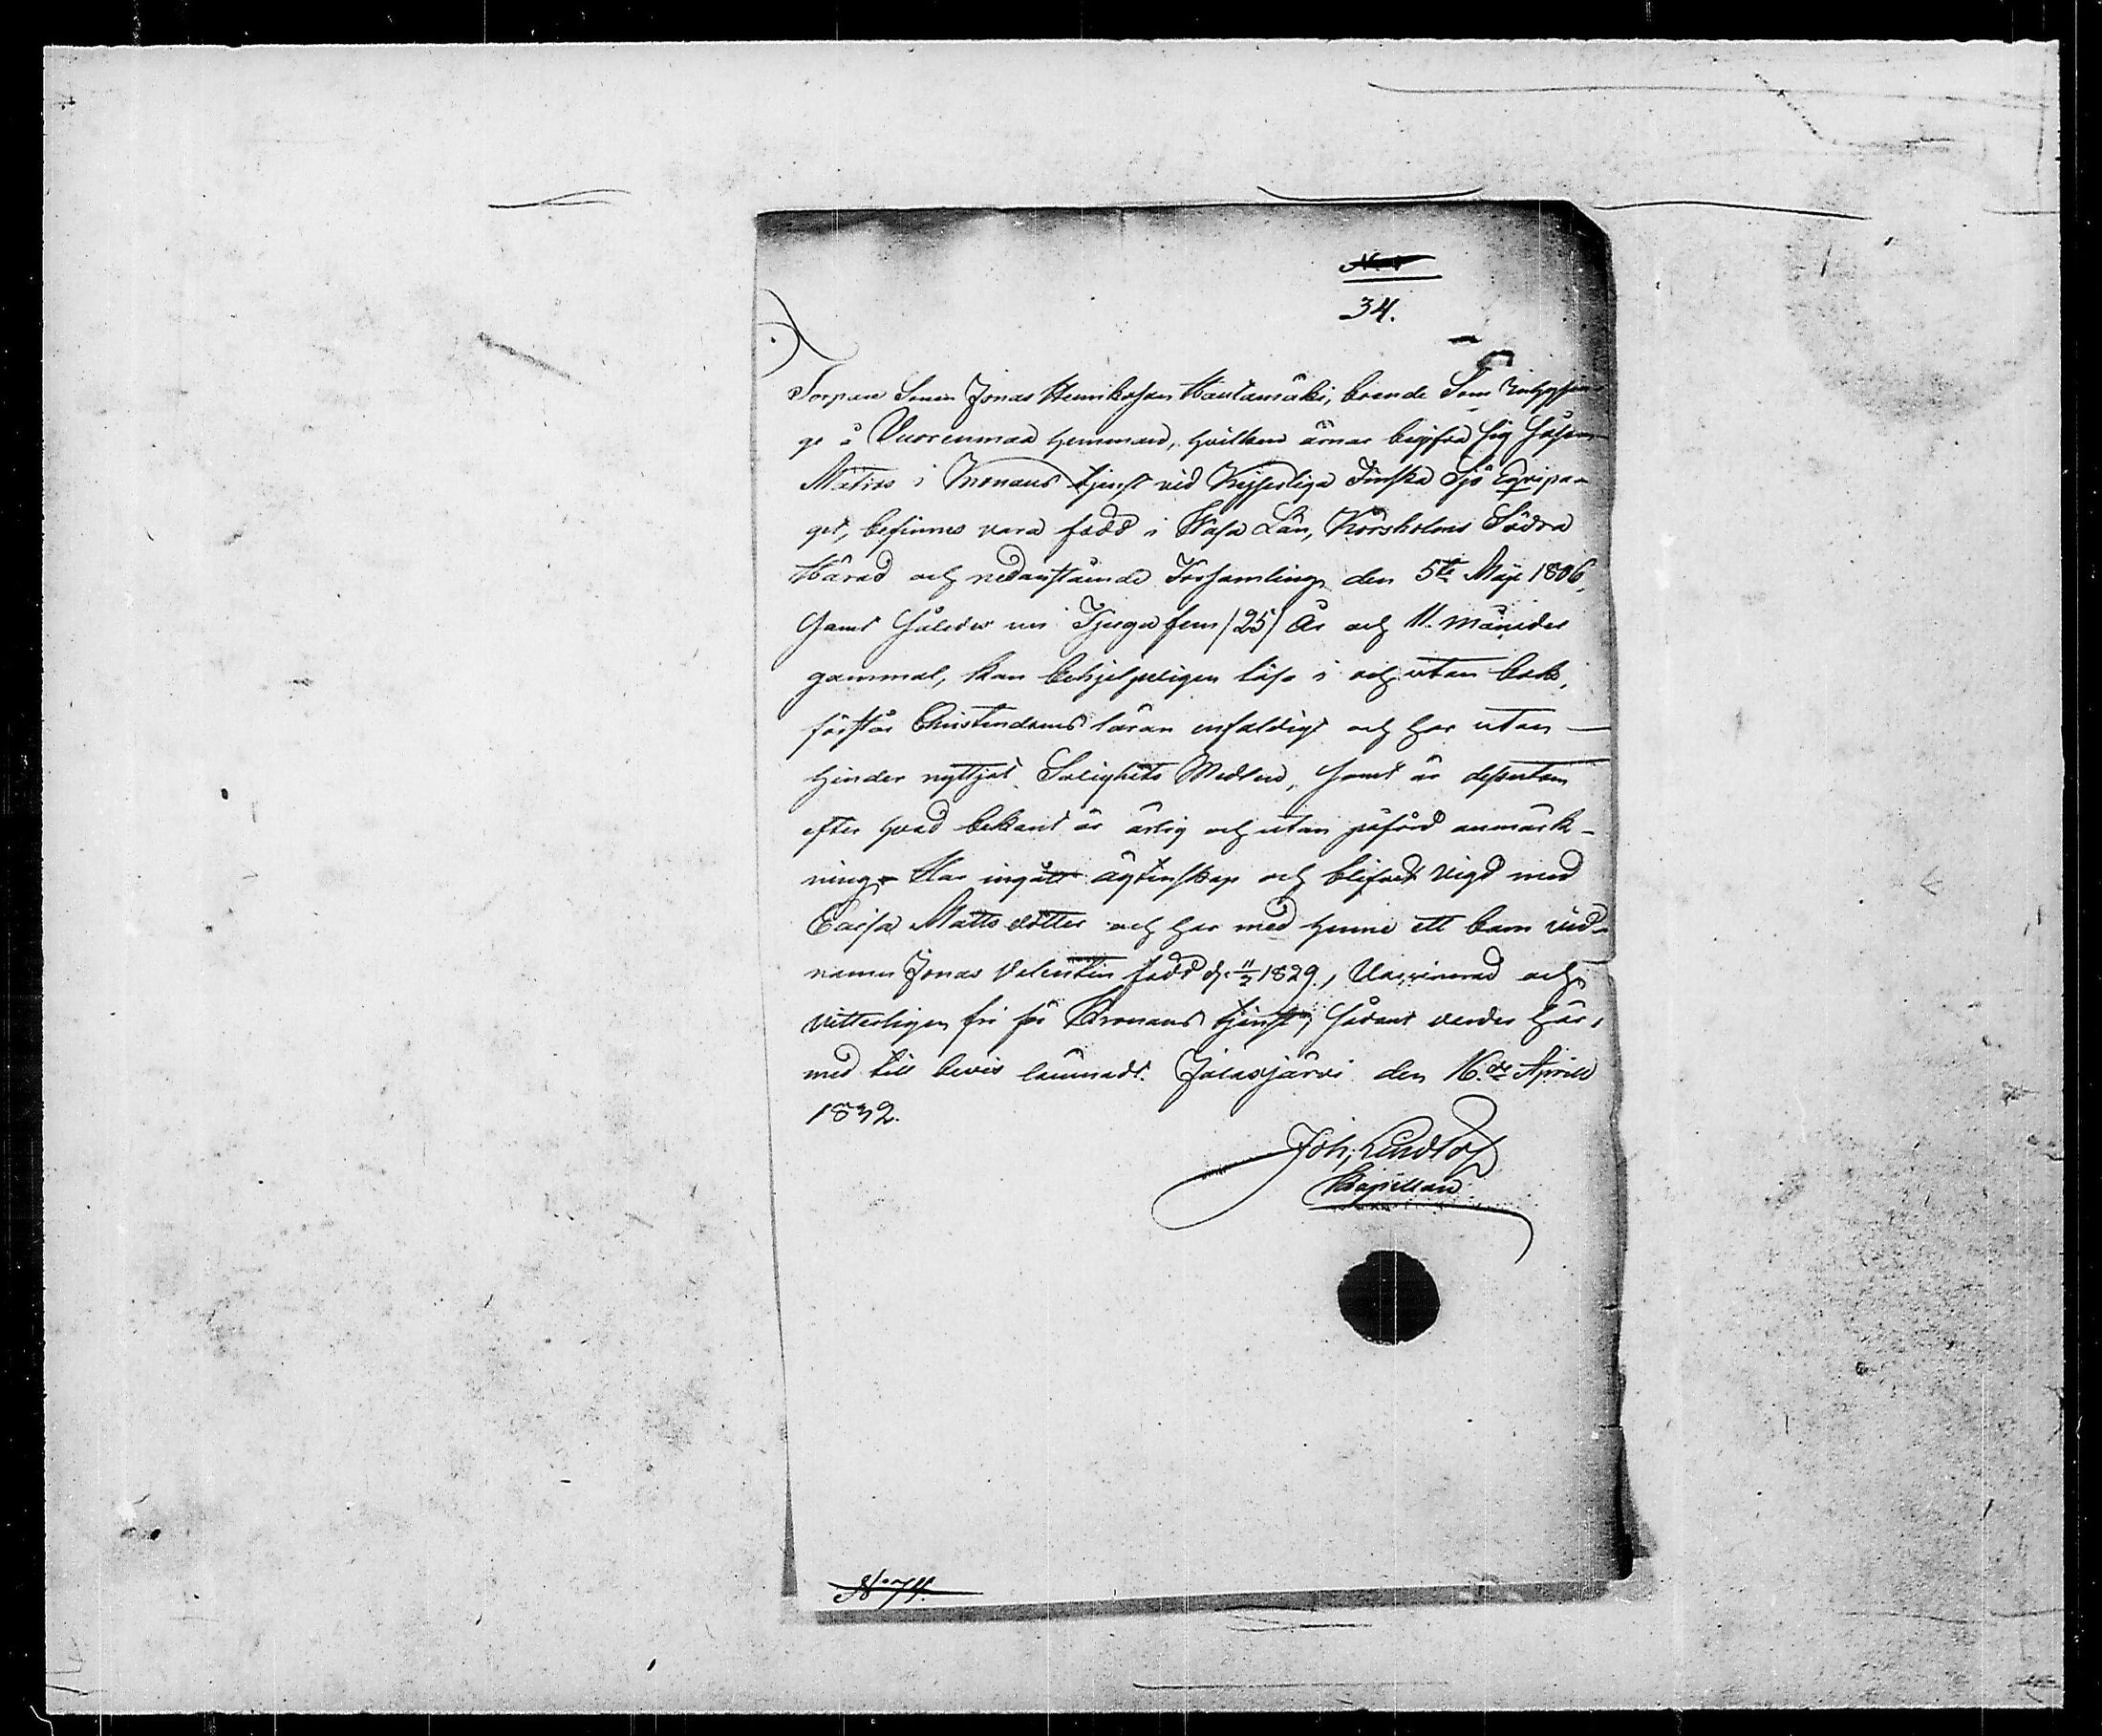 34.
Torpare Sonen Jonas Henriksson Hautamäki, boende Som Inhyses
ge å Vuorenmaa hemman, hvilken ärnar begifva sig såsom
Matros i Kronans tjenst vid Kejserliga Finska Sjö Equipa-
get, befinnes vara född i Wasa Län, Korsholms Södra
Härad och nedanstående Församling den 5te Maji 1806,
samt således nu Tjugufem /25/ År och 11. månader
gammal, kan behjelpeligen läsa i och utan bok,
förstår Christendoms läran enfaldigt och har utan
hinder nyttjat Salighets Medlen, samt är dessutom
efter hvad bekant är ärlig och utan påförd anmärk-
ning. Har ingått ägtenskap och blifvit vigd med
Caisa Matts dotter och har med henne ett barn vid
namn Jonas Valentin född d. 11/2 1829., Vaccinerad och
vitterligen fri för Kronans tjenst; sådant varder här-
med till bevis lämnadt. Jalasjärvi den 16.de April
1832.
Joh. Lindlöf
Kapellan
No 74.